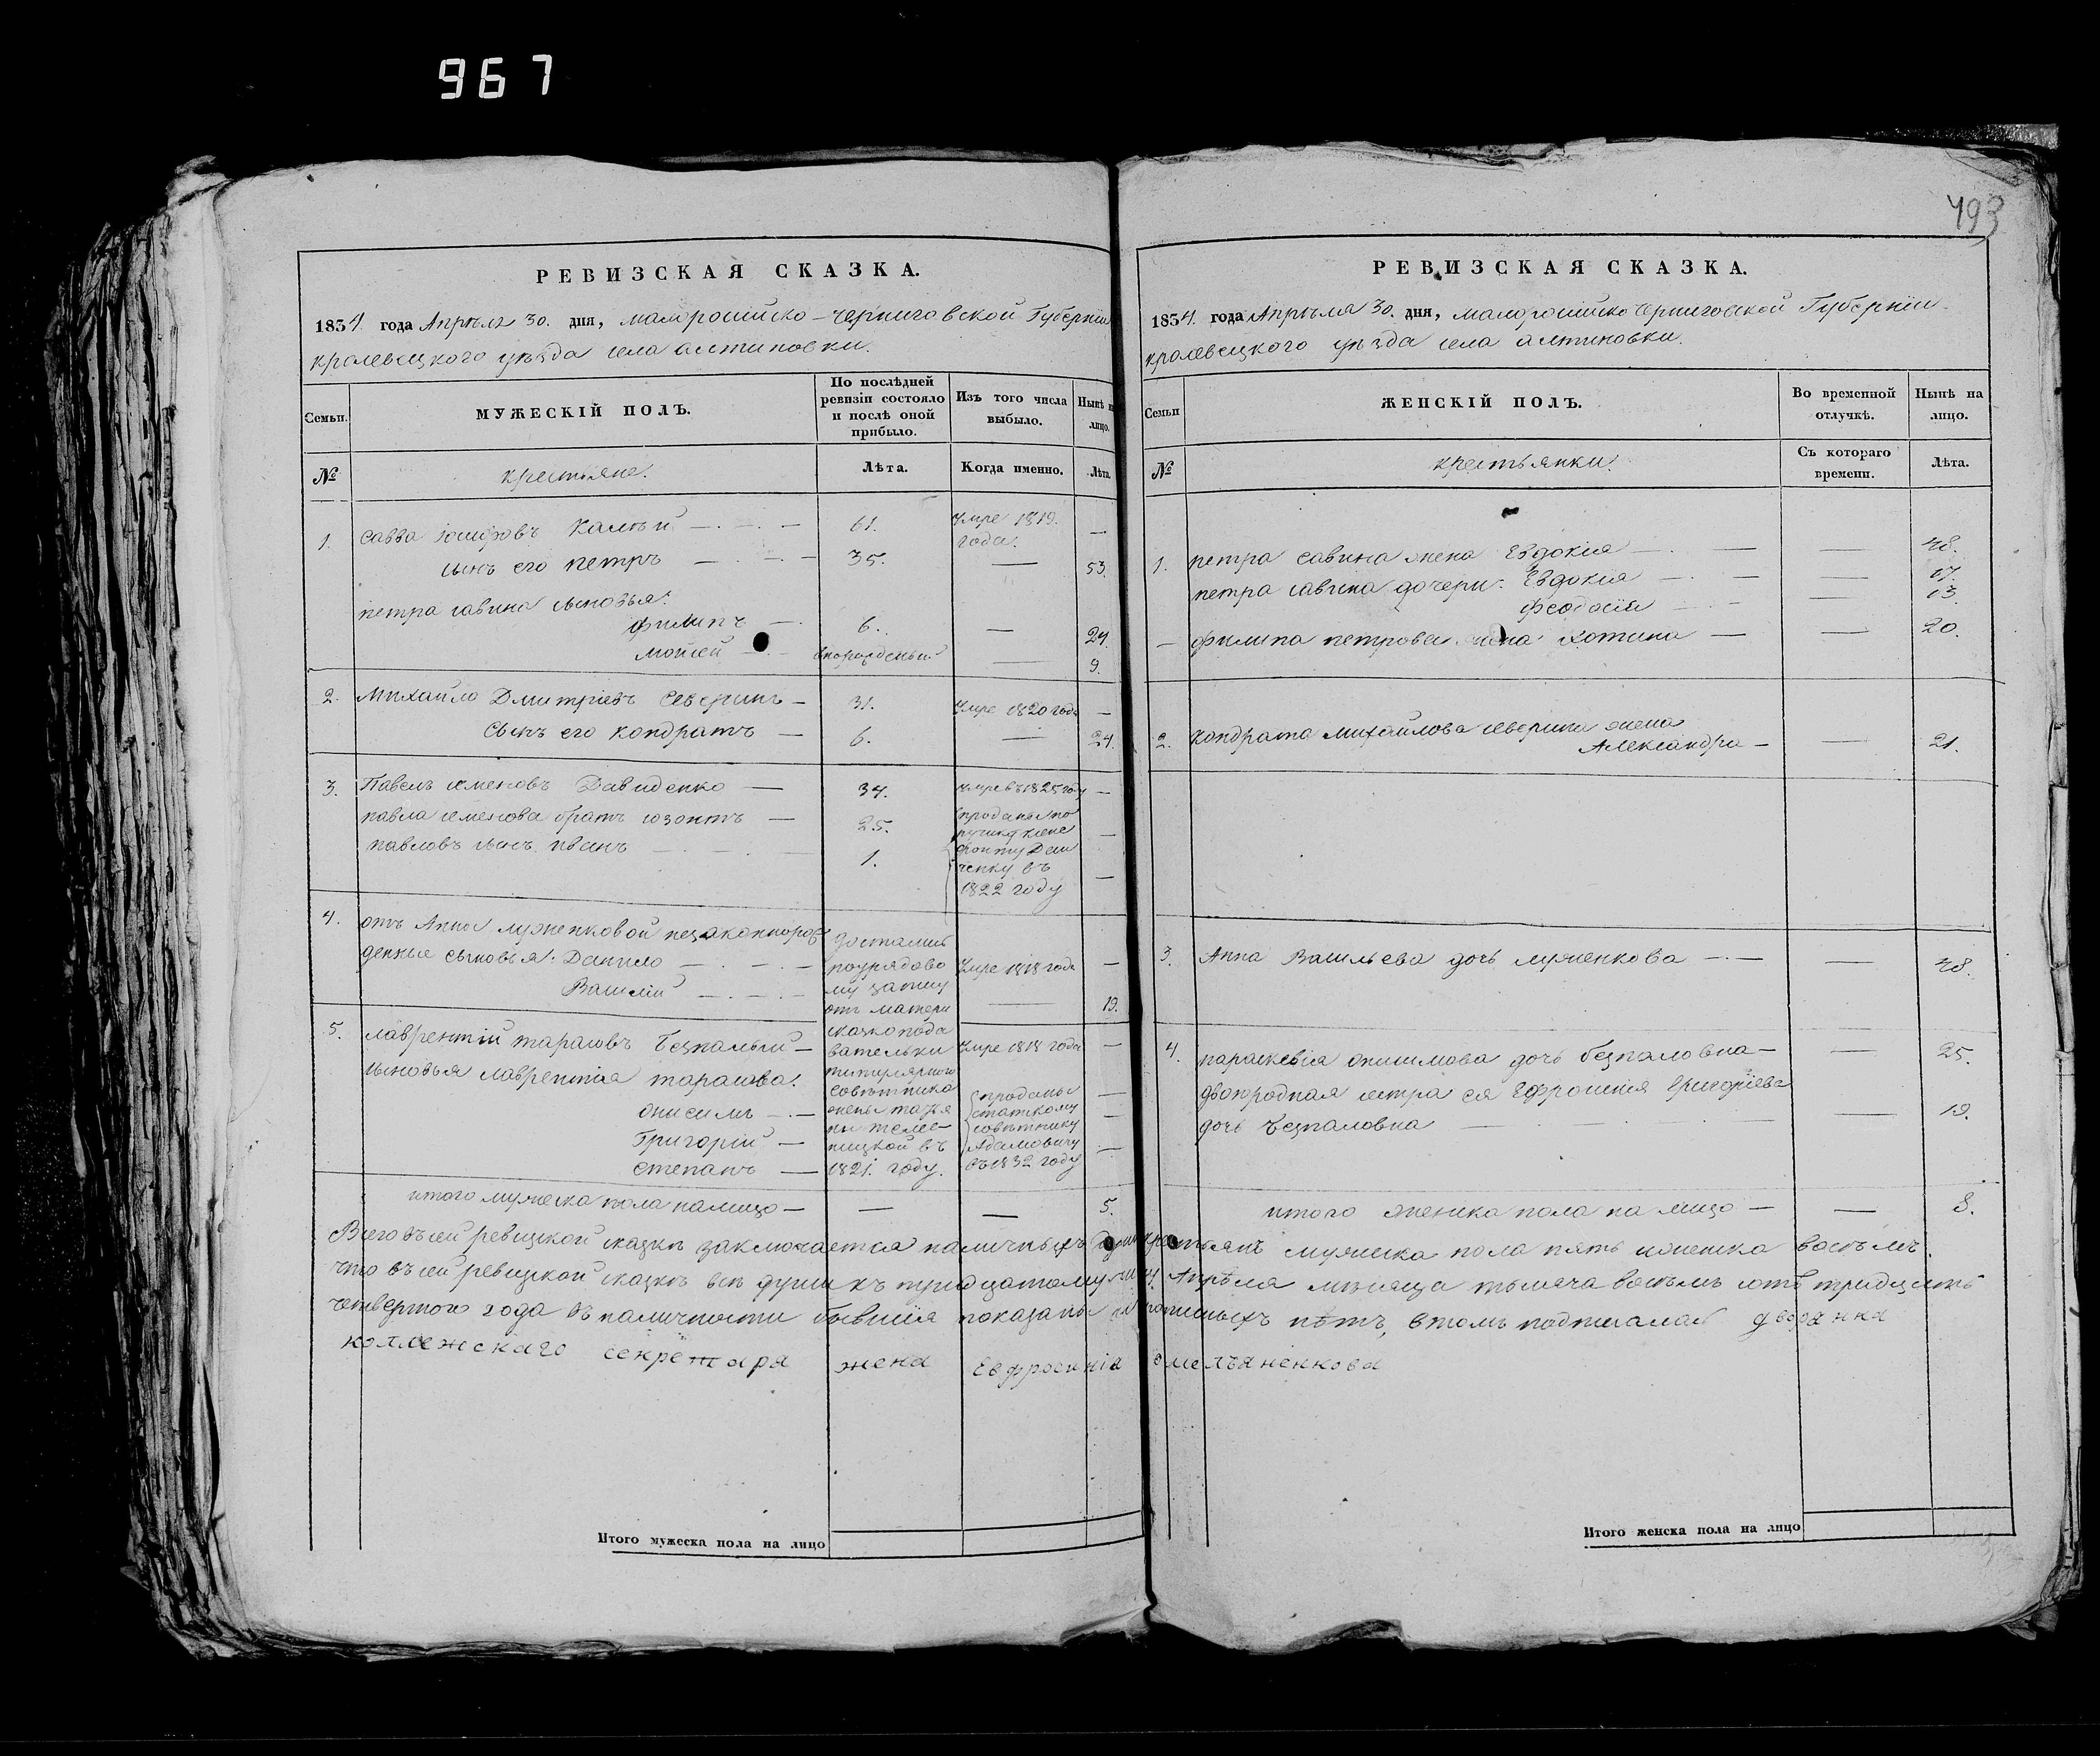 967
793
РЕВИЗСКАЯ СКАЗКА.
1834 года Апреля 30. дня, малоросійско-черниговской Губерніи
кролевецкого уѣзда села алтиновки.
Семьи.
МУЖЕСКІЙ ПОЛЪ.
По послѣдней ревизіи состояло и послѣ оной прибыло.
Изъ того числа выбыло.
Нынѣ на лицо.
№
крестьяне.
Лѣта.
Когда именно.
Лѣта.
1. савва іосифовъ — 61. Умре 1819. года. —
сынъ его петръ — 35. — 53.
петра савина сыновья:
филипъ — 6. — 24
мойсей — 9.
2. Михайло Дмитріевъ Северинъ — 31. Умре 1820 года —
Сынъ его кондратъ — 6. — 24.
3. Павелъ семеновъ Давиденко — 34. умре въ 1825 году —
павла семенова братъ — 25. —
павловъ сынъ иванъ — 1. —
проданы по
ченку въ
1822 году
4. отъ Анны луженковой незаконнорож
денные сыновья: Данило — Умре 1818 года —
Василій — 19.
5. лаврентій тарасовъ Безпалый — Умре 1818 года —
сыновья лаврентія тарасова:
онисимъ —
Григорій —
степанъ —
достались
порядово
му запису
отъ матери
сказкопода
вательки
титулярного
совѣтника
жены
ницкой въ
1821. году.
проданы
статскому
совѣтнику
Адамовичу
въ 1832 году
итого мужеска пола налицо — 5.
РЕВИЗСКАЯ СКАЗКА.
1834. года Апрѣля 30. дня, малоросійско черниговской Губерніи
кролевецкого уѣзда села алтиновки.
Семьи
ЖЕНСКІЙ ПОЛЪ.
Во временной отлучкѣ.
Нынѣ на лицо.
№
крестьянки.
Съ котораго времени.
Лѣта.
1. петра савина жена Евдокія — 48.
петра савина дочери: Евдокія — 17.
феодосія — 13.
филипа петрова жена — 20.
2. кондрата михайлова северина жена
Александра — 21.
3. Анна Васильева дочь луженкова — 48.
4. параскевія онисимова дочь безпаловна — 25.
двоюродная сестра ея Ефросинія Григоріева
дочь Безпаловна — 19.
итого женска пола на лицо — 8.
Всего въ сей ревизской сказкѣ заключается наличныхъ душъ крестьянъ мужеска пола пять и женска восемь.
что въ сей ревизской сказкѣ всѣ души къ тридцатому числу Апрѣля мѣсяца тысяча восемъ сотъ тридцать
четвертого года въ наличности бывшія показаны и прописныхъ нѣтъ, втомъ подписалась дворянка
коллежскаго секретаря жена Евфросинія Омельяненкова
Итого мужеска пола на лицо
Итого женска пола на лицо